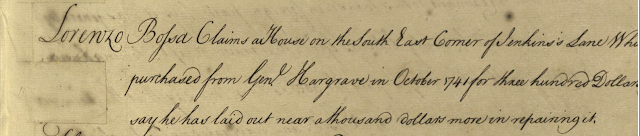 Lorenzo Bossa Claims a House on the South East Corner of Jenkins's Lane
purchased from Genl. Hargrave in October 1741 for three hundred Dollars
say he has laid out near a thousand dollars more in repairing it.